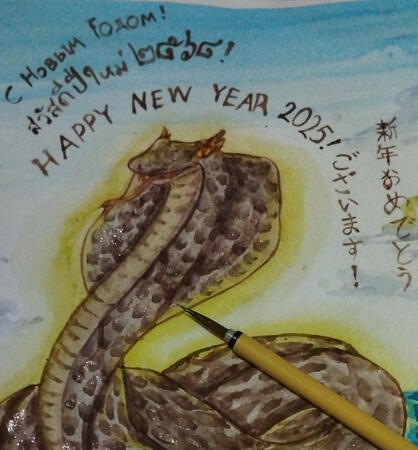 С Новым Годом!
สวัสดีปีใหม่ ๒๕๖๘!
HAPPY NEW YEAR 2025!
新年おめでとう
ございます!